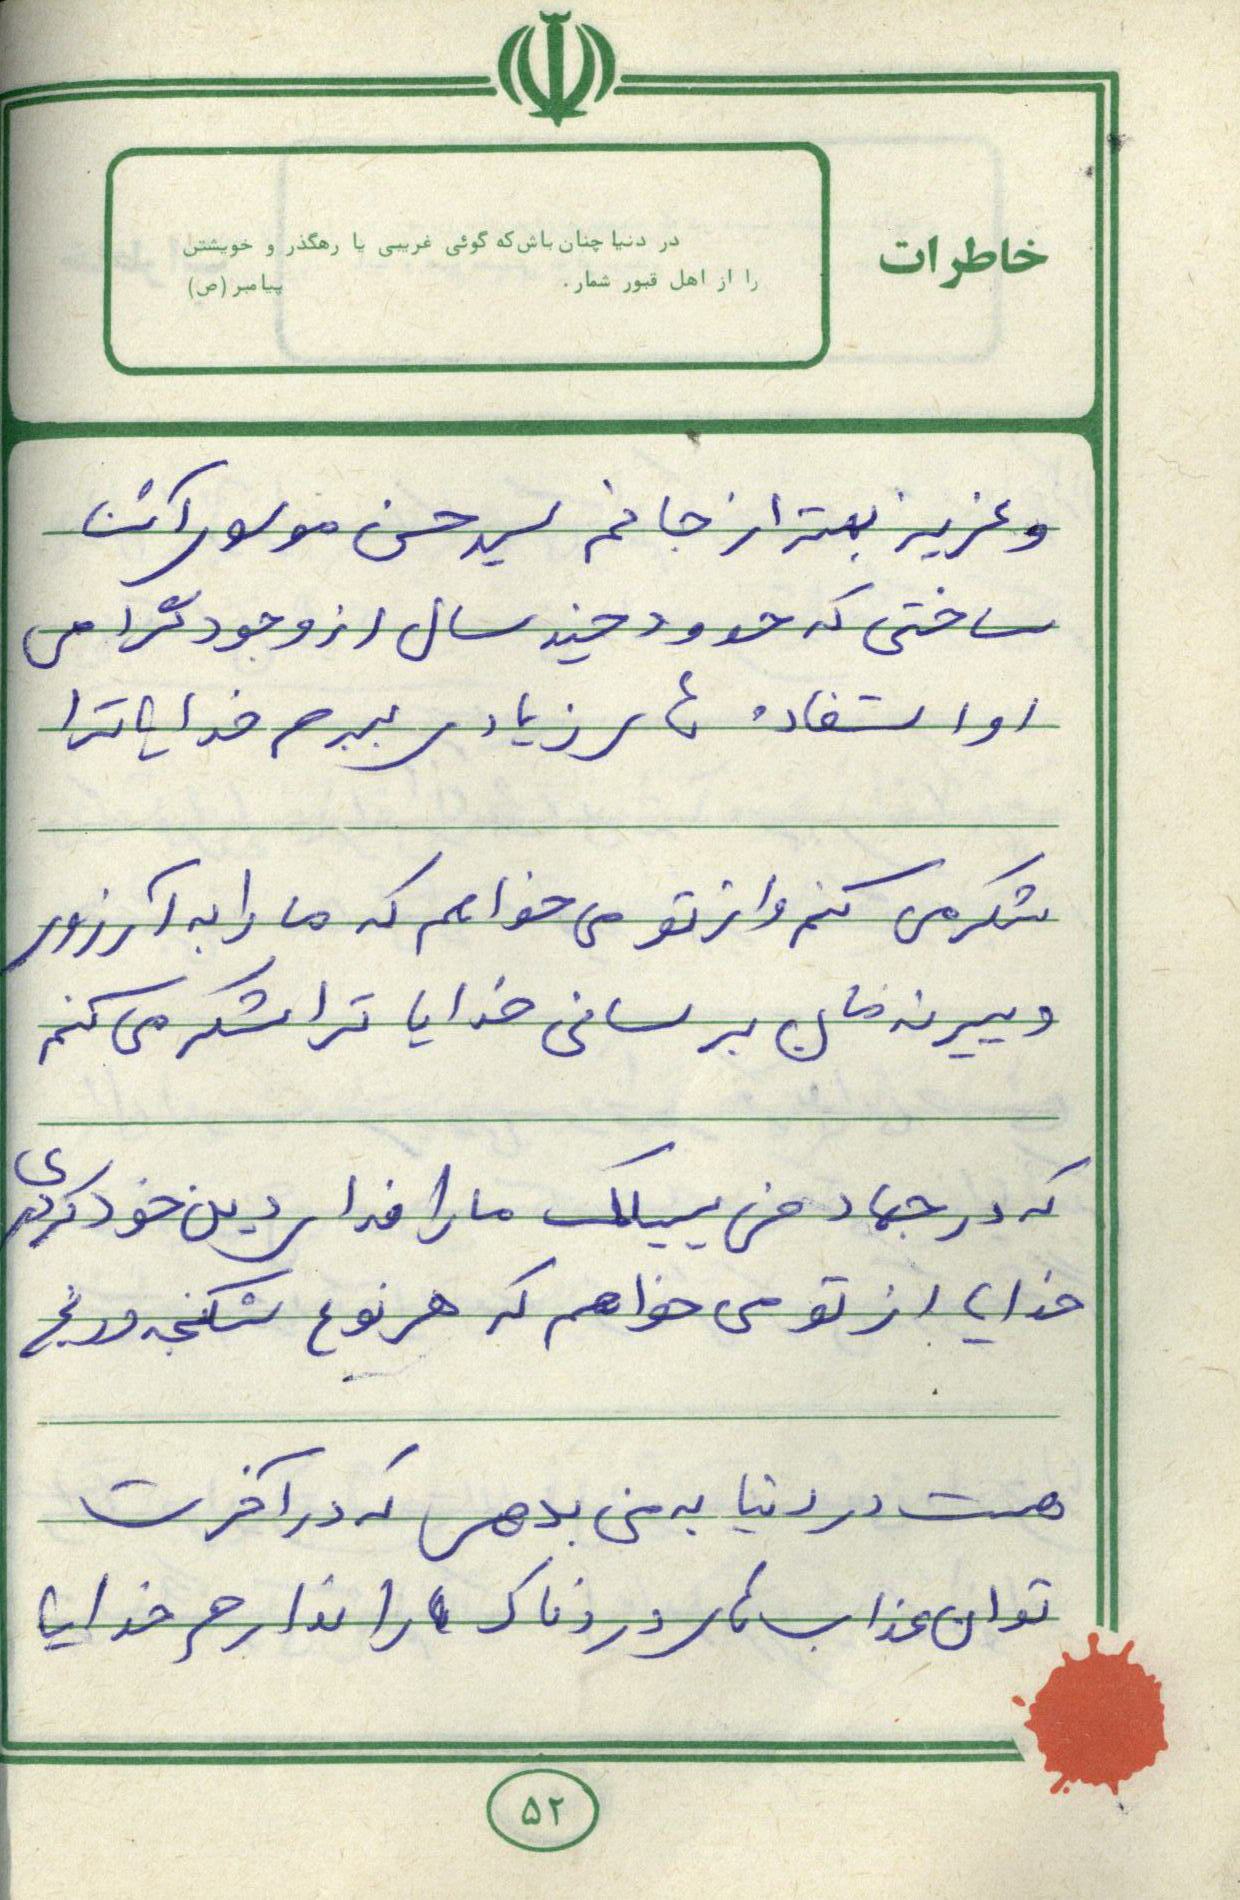 خاطرات
در دنیا چنان باش که گوئی غریبی یا رهگذر و خویشتن
را از اهل قبور شمار. پیامبر (ص)
و عزیز بهتر از جانم سید حسن موسوی آشنا
ساختی که حدود چند سال از وجود گرامی
او استفاده های زیادی ببرم خدایا ترا
شکر می کنم و از تو می خواهم که ما را به آرزوی
دیرینه مان برسانی خدایا ترا شکر می کنم
که در جهاد فی سبیلک ما را فدای دین خود کردی
خدایا از تو می خواهم که هر نوع شکنجه و رنج
هست در دنیا به من بدهی که در آخرت
توان عذاب های دردناک را ندارم خدایا
۵۲